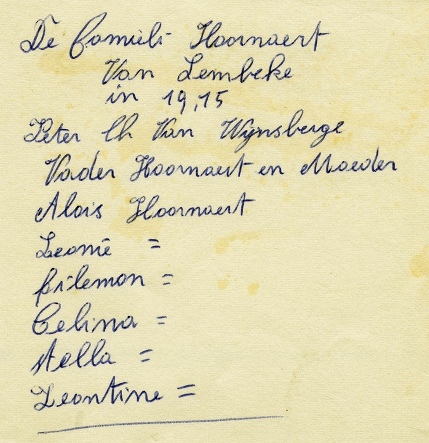 De famieli Hoornaert
Van Lembeke
in 19,15
Peter Ch Van Wynsberge
Vader Hoornaert en Moeder
Alois Hoornaert
Leonie =
filemon =
Celina =
Stella =
Leontine =